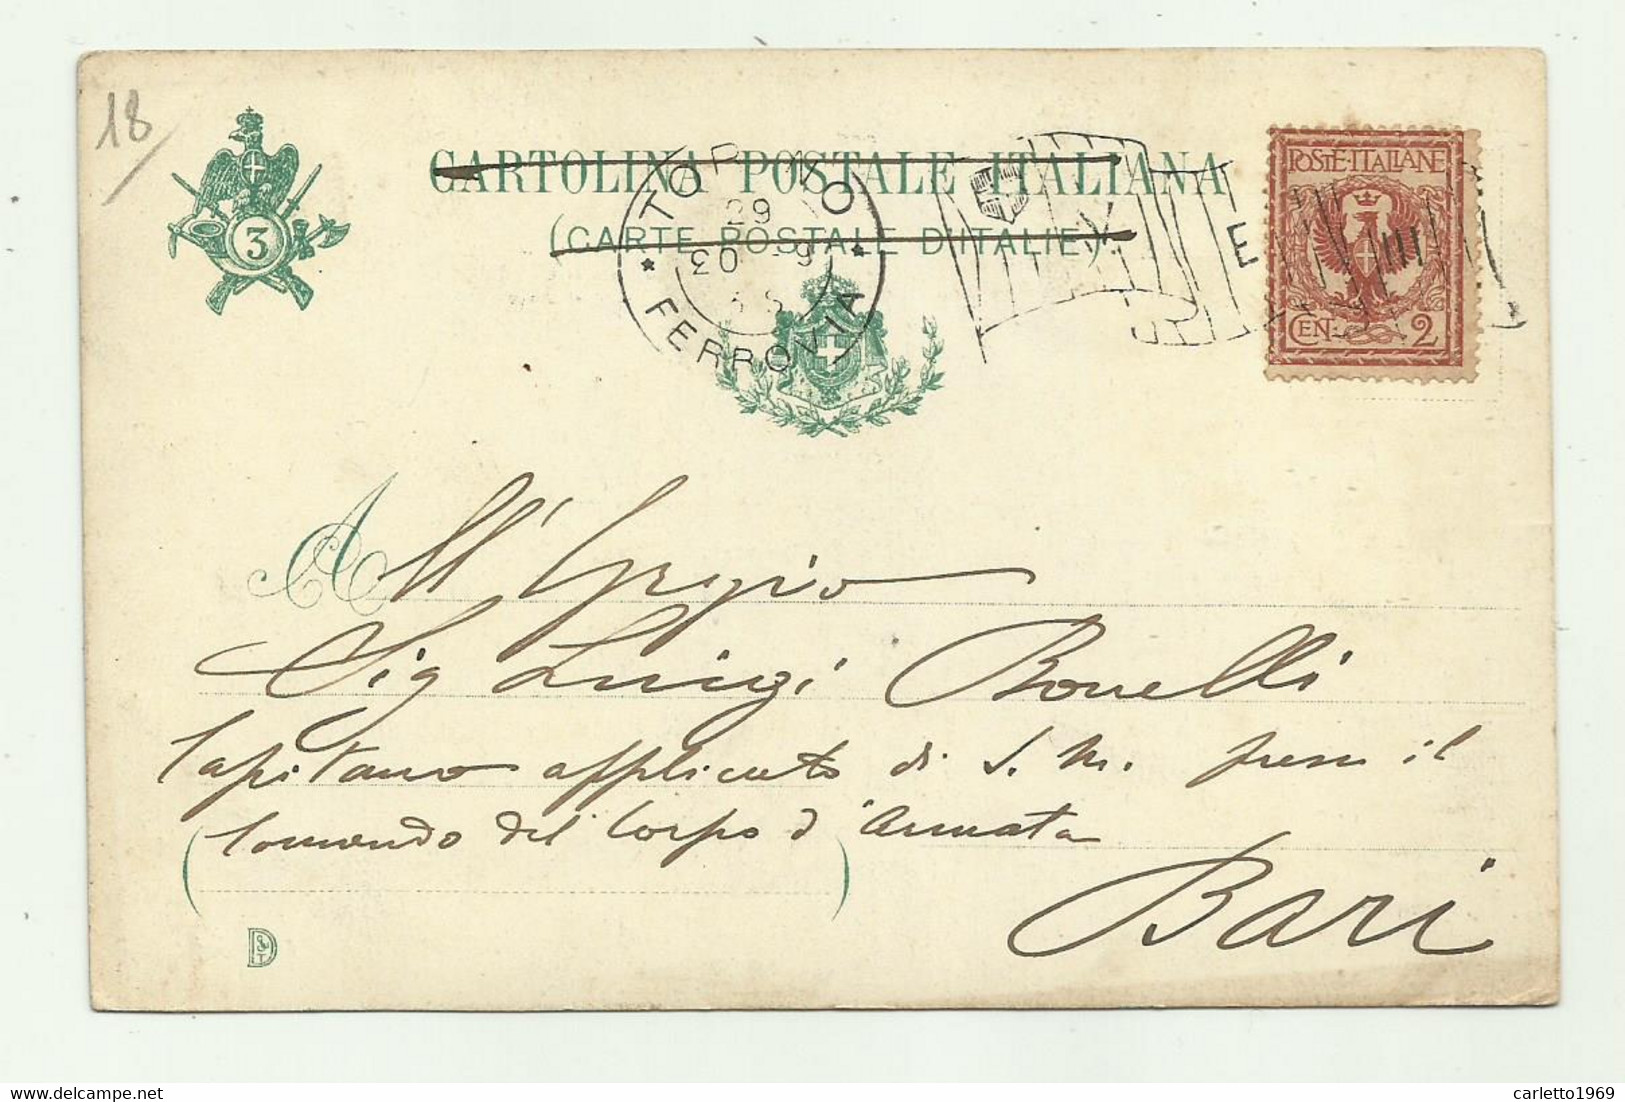 18
3
CARTOLINA POSTALE ITALIANA
(CARTE POSTALE D'ITALIE)
TORINO
29
FERROVIA
E
POSTE·ITALIANE
CEN 2
All'Egregio
Sig Luigi Bonelli
Capitano applicato di S. M. presso il
Comando del Corpo d'Armata
Bari
carletto1969